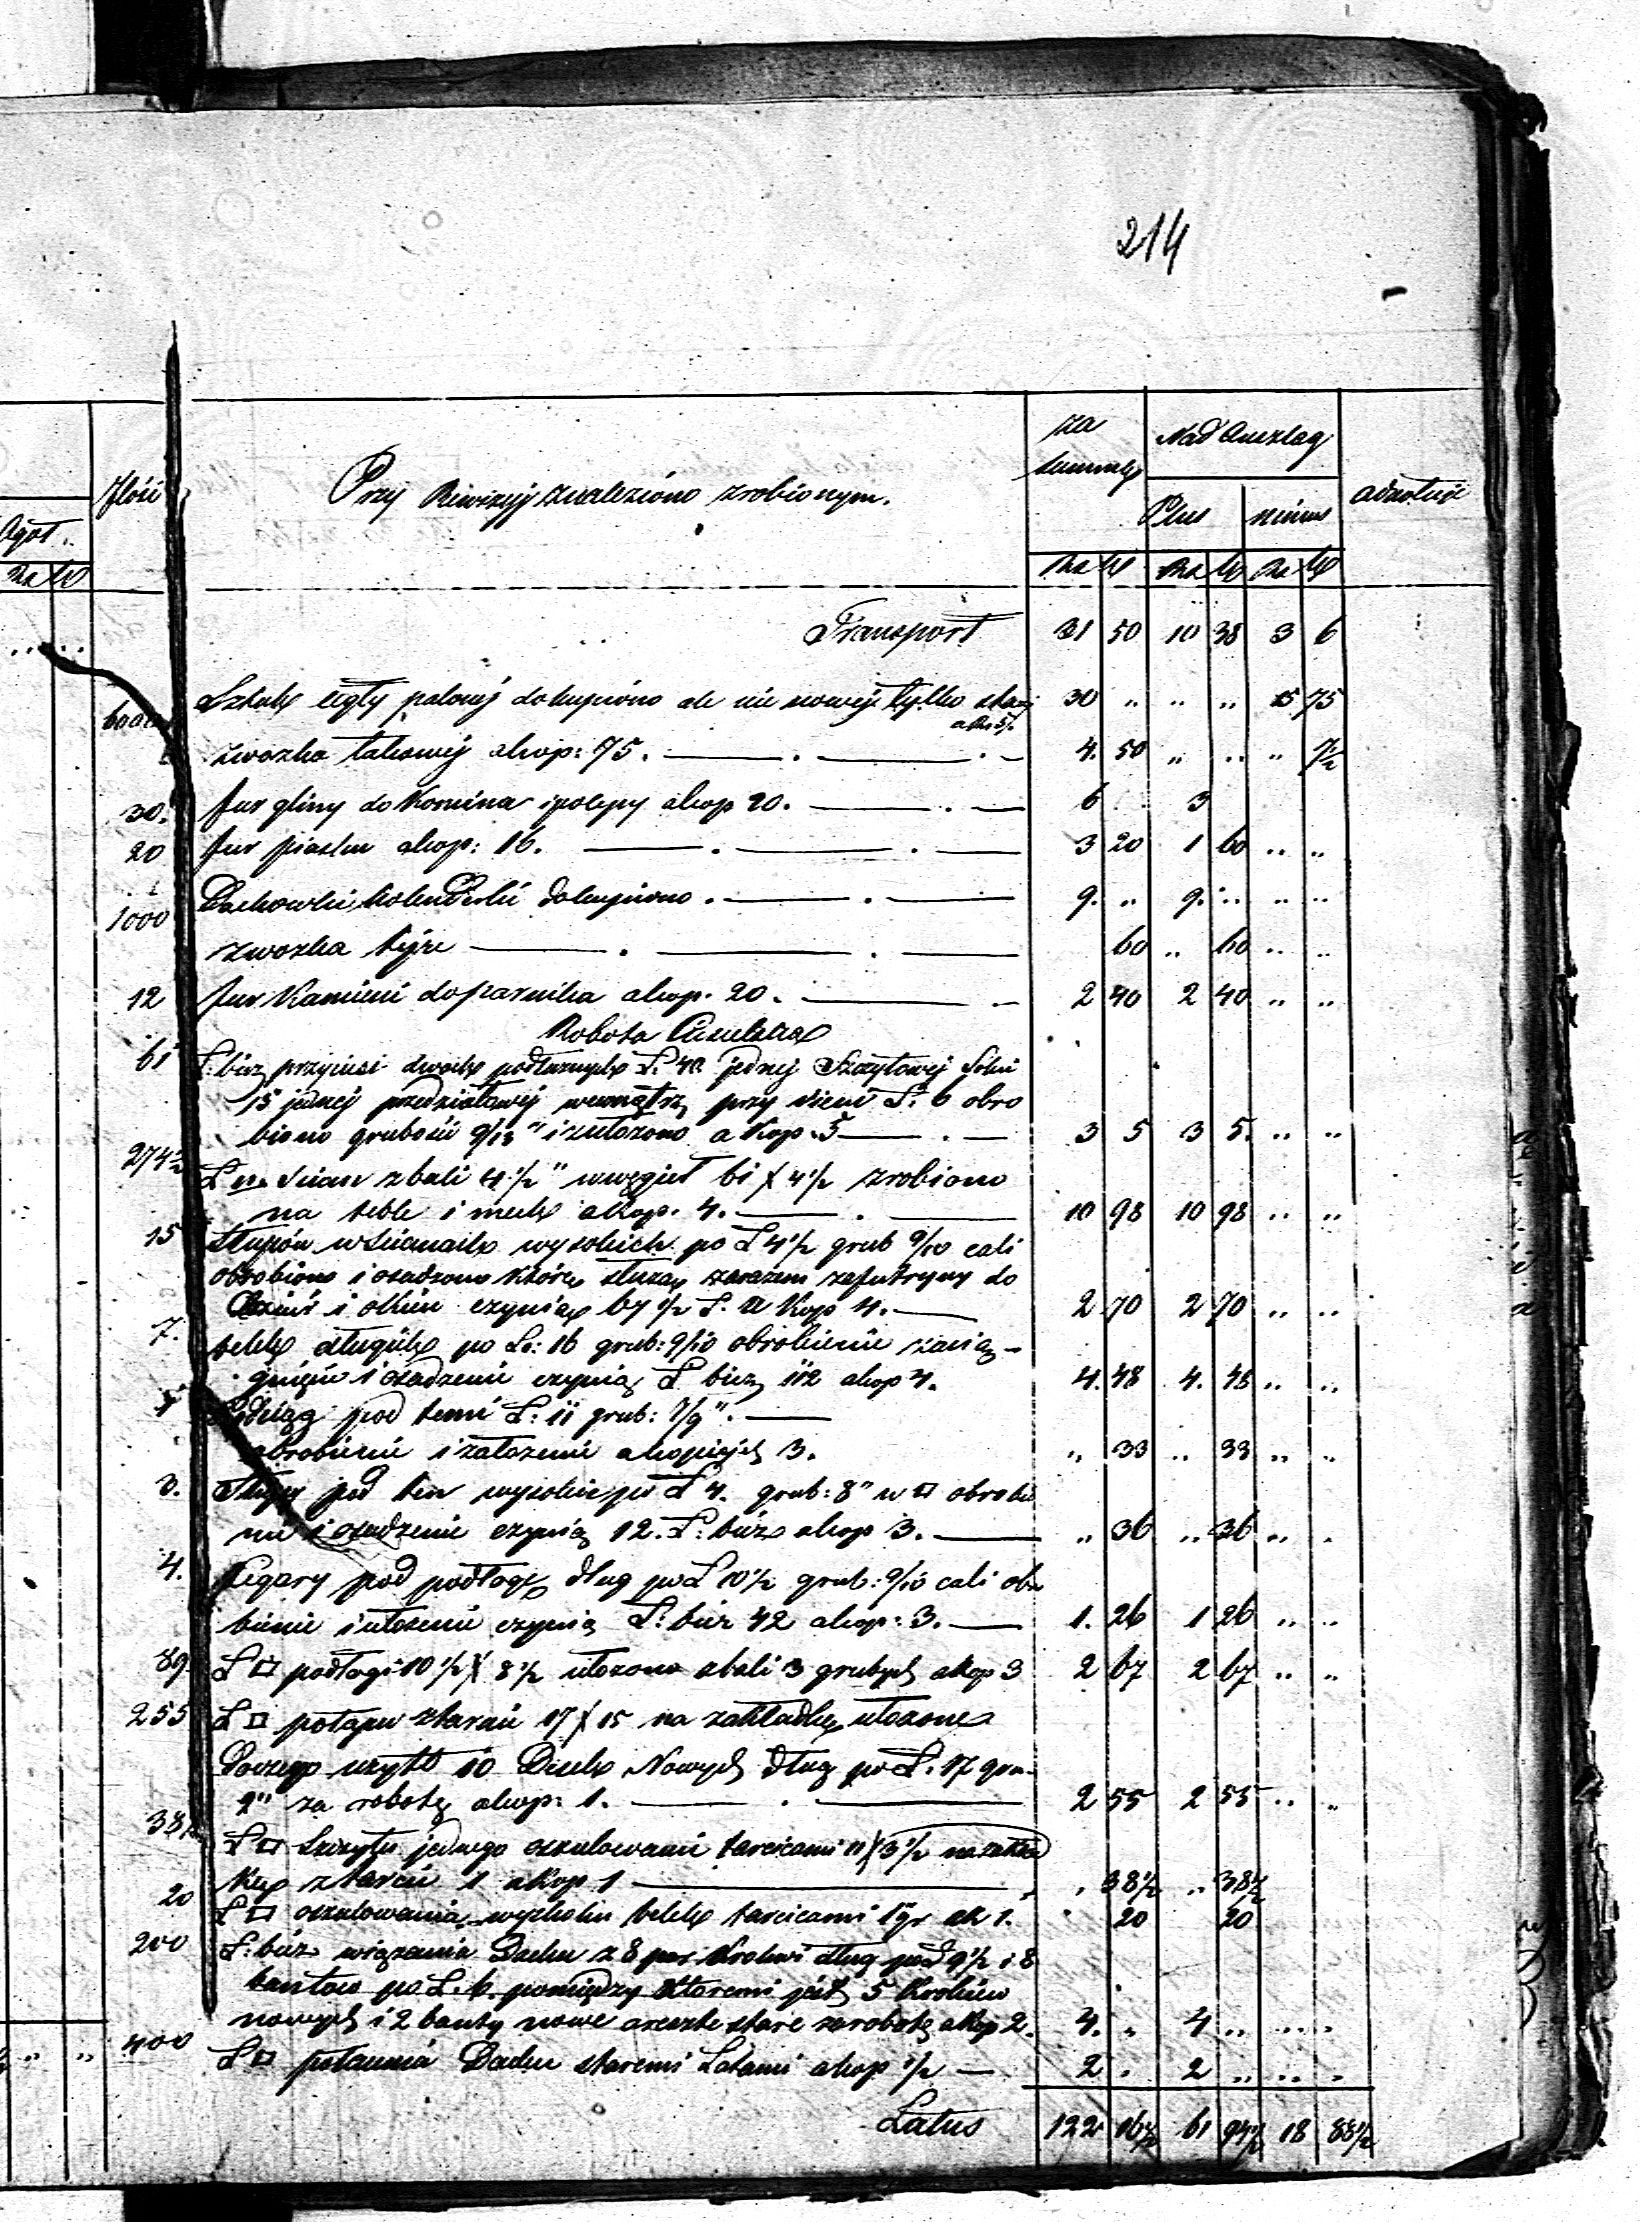 214
Ilość Przy Rewizyji znaleziono zrobionym. za summę Nad Anszlag adnotacje
Plus minus
Rs k Rs k Rs k
Transport 31 50 10 38 3 6
6000 Sztuk cegły palonej dokupiono ale nie nowej tylko starej a Rs 5/. 30 " " " 15 75
zwozka takowej akop: 75. 4. 50 " " " 7½
30. fur gliny do Komina i polepy akop 20. 6 3
20 fur piasku akop: 16. 3 20 1 60 " "
1000 Dachowki holenderki dokupiono. 9. " 9. " " "
zwozka tejże 60 " 60 " "
12 fur Kamieni do parnika akop. 20. 2 40 2 40 " "
Robota Ciesielska
61 Ł: bież przyciesi dwoch podłużnych Ł. 40 jednej Szczytowej
15 jednej przedziałowej wewnątrz przy Sieni Ł: 6 obro
biono grubości 9/12" i założono a Kop. 5 3 5 3 5. " "
274½ Ł □ Scian z bali 4½" w węgieł 61 X 4½ zrobiono
na teble i mech akop. 4. 10 98 10 98 " "
15 słupów w Scianach wysokich po Ł 4½ grub 9/10 cali
obrobiono i osadzono które służą zarazem za futryny do
Drzwi i okien czynią 67½ Ł. a Kop 4. 2 70 2 70 " "
7. belek długich po Ł: 16 grub: 9/10 obrobienie zacią-
gnięcie i osadzenie czynią Ł bież 112 akop 4. 4. 48 4. 48 " "
1 Podciąg pod temi Ł: 11 grub: 7/9".
obrobienie i założenie akopiejek 3. " 33 " 33 " "
3. Słupy pod ten wysokie po Ł 4. grub: 8" w □ obrobie
nie i osadzenie czynią 12. Ł: bież akop 3. " 36 " 36 " "
4. Legary pod podłogę dług po Ł 10½ grub: 9/10 cali obro
bienie i ułożenie czynią Ł: bież 42 akop: 3. 1. 26 1 26 " "
89 Ł □ podłogi 10½ X 8½ ułożono z bali 3 grubych akop 3 2 67 2 67 " "
255 Ł □ połapu z tarcic 17 X 15 na zakładkę ułożone
Do czego użyto 10 Desek Nowych dług po Ł. 17 gru.
2" za robotę akop: 1. 2 55 2 55 " "
38½ Ł □ Szczytu jednego oszalowanie tarcicami 11 X 3½ na zakład
kę z tarcic 1 akop 1 " 38½ " 38½
20 Ł □ oszalowania belek tarcicami ak 1. " 20 20
200 Ł: bież wiązania Dachu z 8 par Krokwi dług po Ł 9½ i 8
bantow po Ł. 6. pomiędzy ktoremi jest 5 Krokiew
nowych i 2 banty nowe a reszta stare za robotę akop 2. 4. " 4 " " "
400 Ł □ połacenia Dachu staremi Łatami akop ½ 2 " 2 " " "
Latus 122 16½ 61 94½ 18 88½